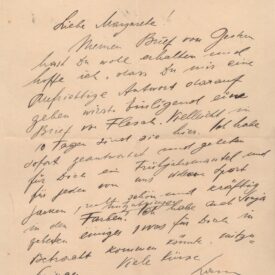 Liebe Margarete!
Meinen Brief von Gestern
hast Du wohl erhalten und
hoffe ich, dass Du mir eine
aufrichtige Antwort darauf
geben wirst. Einliegend eine
Brief von Flesch. Vielleicht in
Tagen sind sie hier. Ich habe
sofort geantwortet und gebeten
für Dich ein Frühjahrsmantel und
für jeden von uns Sport
jacken, und kräftig
in den Farben. Ich habe auch
gebeten einiges was für Dich in
Betracht kommen könnte
Viele Küsse